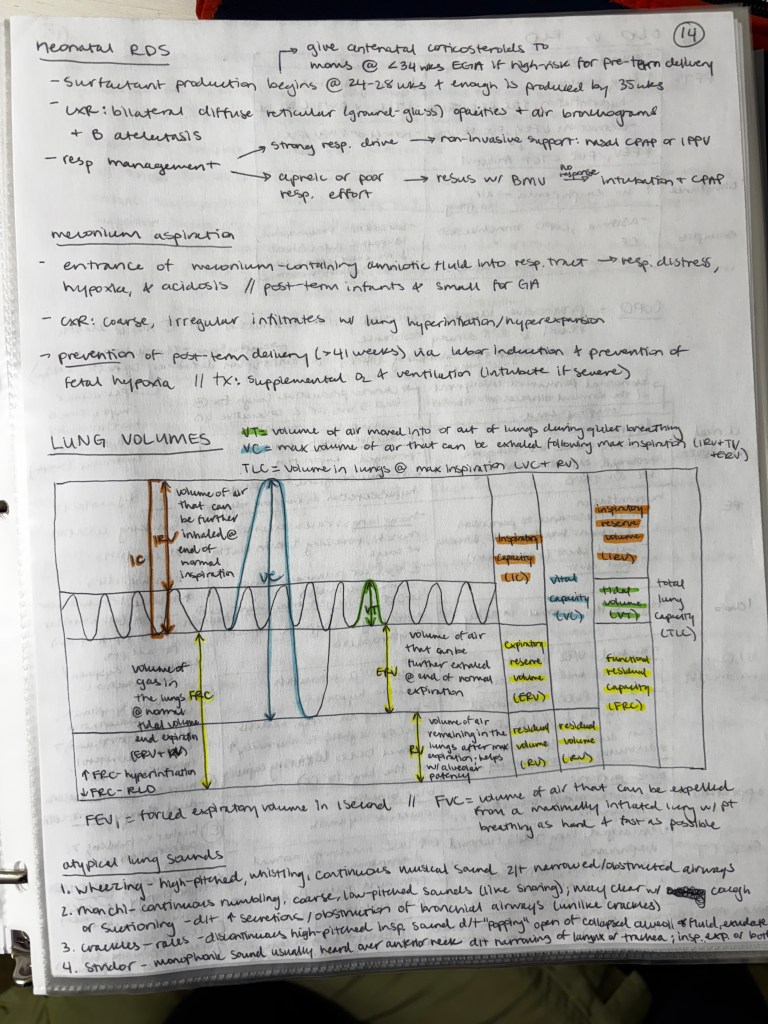 14
neonatal RDS
give antenatal corticosteroids to
moms @ <34 wks EGA if high-risk for pre-term delivery
- surfactant production begins @ 24-28 wks + enough is produced by 35 wks
- CXR: bilateral diffuse reticular (ground-glass) opacities + air bronchograms
+ B atelectasis
- resp management → strong resp. drive → non-invasive support: nasal CPAP or IPPV
→ apneic or poor resp. effort → resus w/ BMV no response → intubation + CPAP
meconium aspiration
- entrance of meconium-containing amniotic fluid into resp. tract → resp. distress,
hypoxia, & acidosis // post-term infants & small for GA
- CXR: coarse, irregular infiltrates w/ lung hyperinflation/hyperexpansion
- prevention of post-term delivery (>41 weeks) via labor induction & prevention of
fetal hypoxia // tx: supplemental O2 & ventilation (intubate if severe)
LUNG VOLUMES
VT = volume of air moved into or out of lungs during quiet breathing
VC = max volume of air that can be exhaled following max inspiration (IRV+TV
+ERV)
TLC = volume in lungs @ max inspiration (VC + RV)
IC
IRV
volume of air
that can
be further
inhaled @
end of
normal
inspiration
VC
VT
inspiratory
capacity
(IC)
vital
capacity
(VC)
inspiratory
reserve
volume
(IRV)
tidal
volume
(VT)
total
lung
capacity
(TLC)
volume of
gas in
the lungs
@ normal
tidal volume
end expiration
(ERV + RV)
FRC
↑ FRC - hyperinflation
↓ FRC - RLD
ERV
volume of air
that can be
further exhaled
@ end of normal
expiration
expiratory
reserve
volume
(ERV)
functional
residual
capacity
(FRC)
RV
volume of air
remaining in the
lungs after max
expiration - helps
w/ alveolar
patency
residual
volume
(RV)
residual
volume
(RV)
FEV1 = forced expiratory volume in 1 second // FVC = volume of air that can be expelled
from a maximally inflated lung w/ pt
breathing as hard & fast as possible
atypical lung sounds
1. wheezing - high-pitched, whistling, continuous musical sound 2/t narrowed/obstructed airways
2. rhonchi - continuous rumbling, coarse, low-pitched sounds (like snoring); may clear w/ cough
or suctioning - d/t ↑ secretions / obstruction of bronchial airways (unlike crackles)
3. crackles - rales - discontinuous high-pitched insp. sound d/t "popping" open of collapsed alveoli & fluid, exudate
4. stridor - monophonic sound usually heard over anterior neck d/t narrowing of larynx or trachea; insp. exp. or both